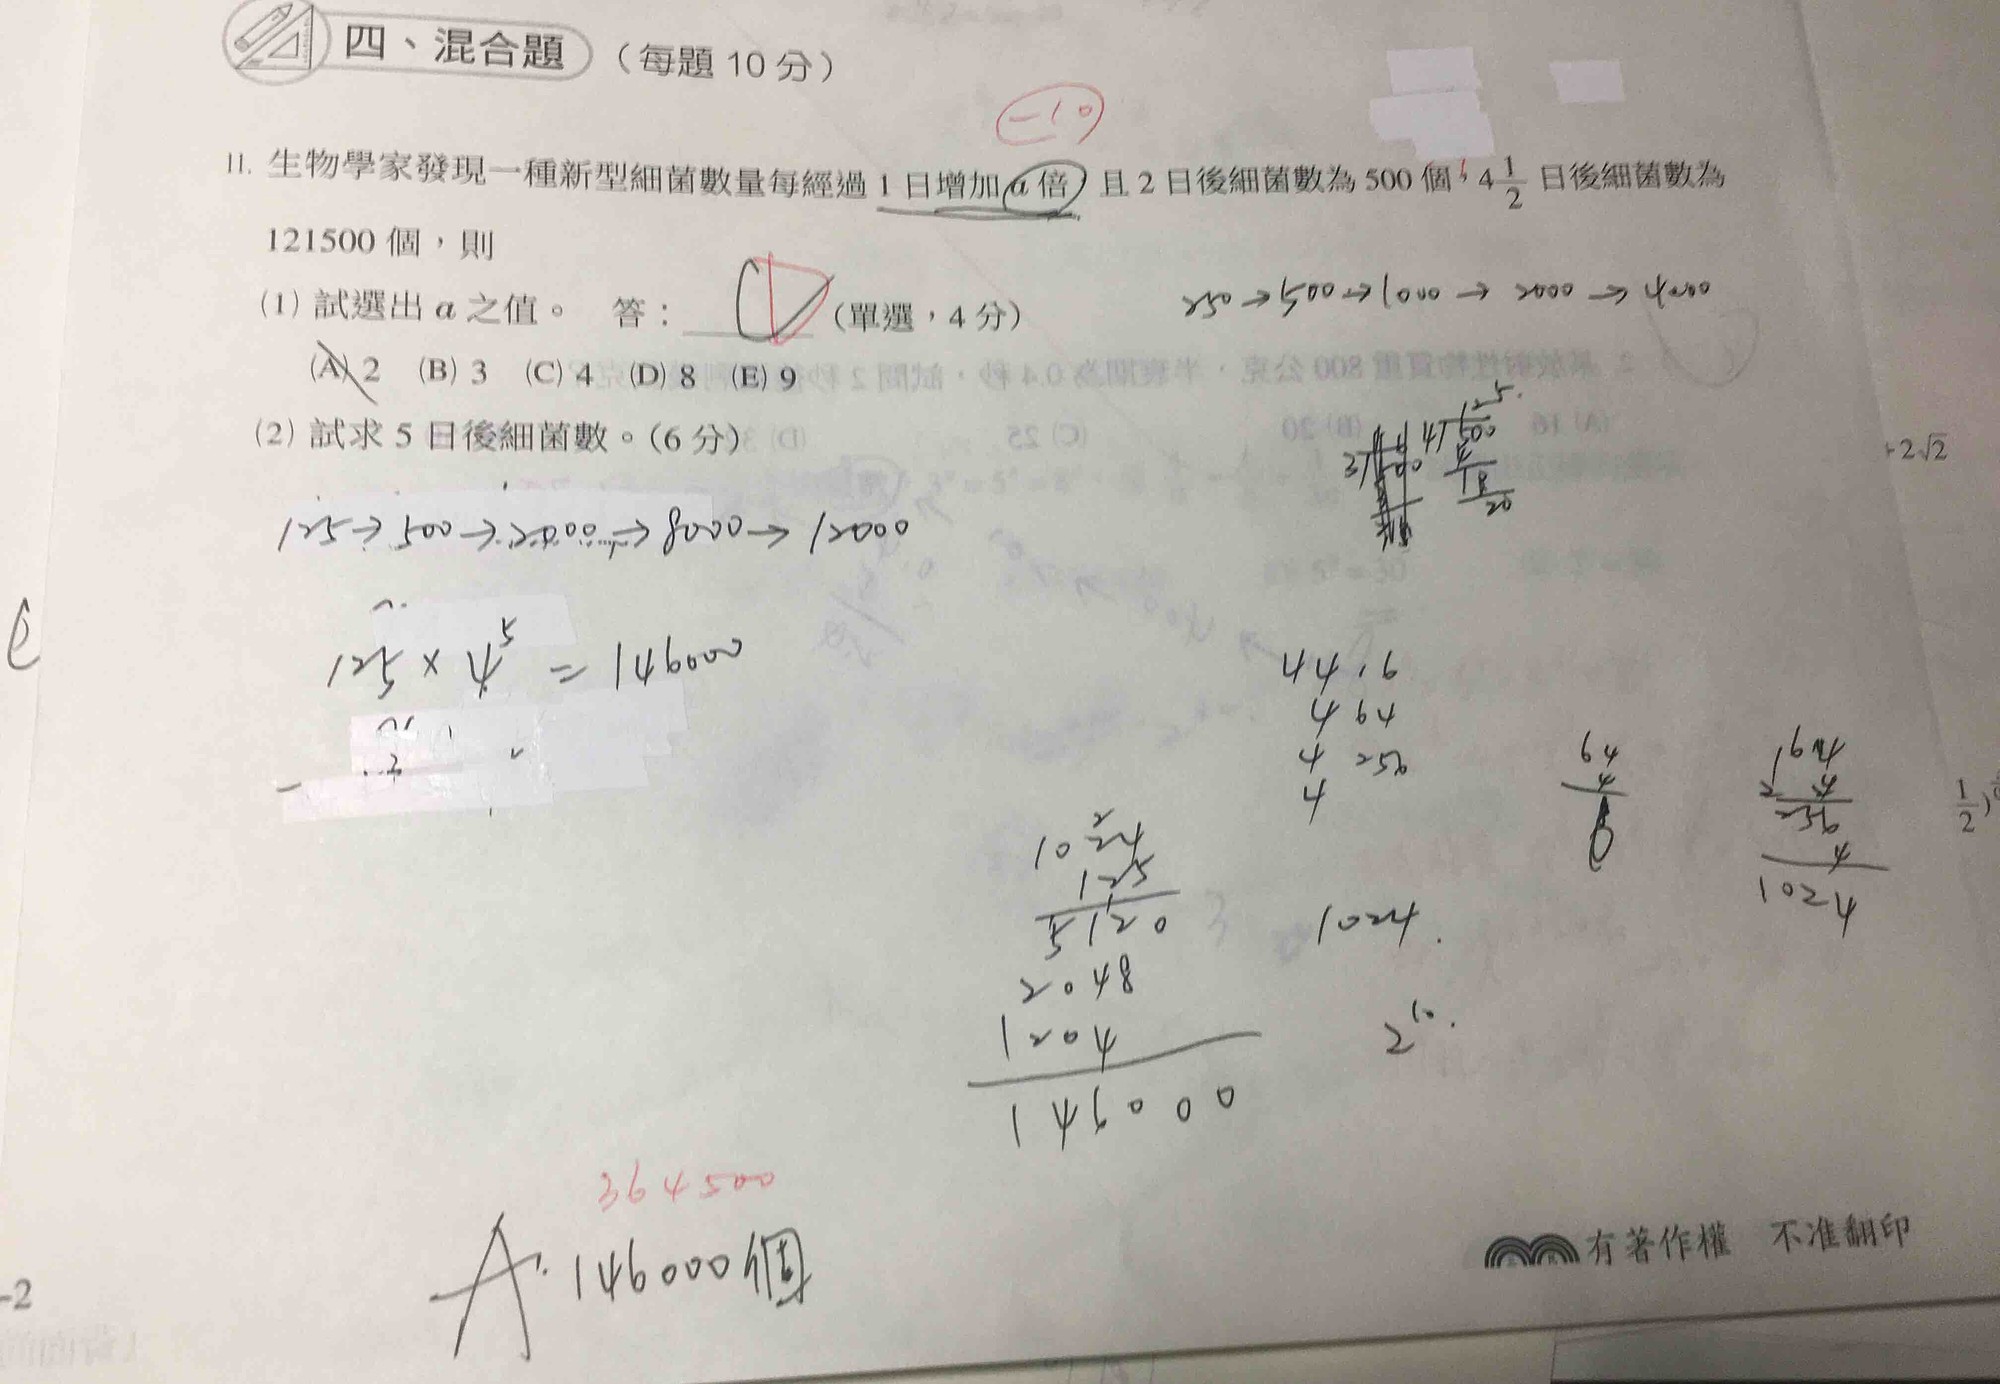 四、混合題(每題 10 分)
-10
11. 生物學家發現一種新型細菌數量每經過 1 日增加 a 倍,且 2 日後細菌數為 500 個,4 1/2 日後細菌數為
121500 個,則
(1) 試選出 a 之值。 答: (單選,4 分)
250 → 500 → 1000 → 2000 → 4000
(A) 2 (B) 3 (C) 4 (D) 8 (E) 9
(2) 試求 5 日後細菌數。(6 分)
125
4 500
4
18
20
+2√2
125 → 500 → 2000 → 8000 → 12000
125 × 4⁵ = 146000
44 16
4 64
4 256
4
64
4
164
4
256
4
1024
1/2)
1024
125
5120
2048
1204
145000
1024.
2¹⁰.
364500
A. 146000個
有著作權 不准翻印
-2